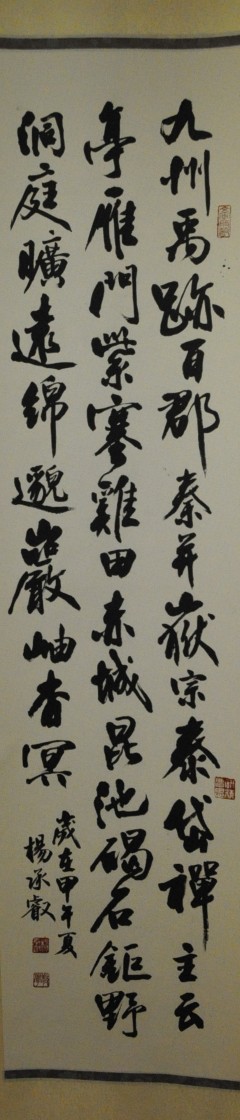 九州禹跡百郡秦并嶽宗泰岱禪主云
亭雁門紫塞雞田赤城昆池碣石鉅野
洞庭曠遠綿邈巖岫杳冥
歲在甲午夏
楊承叡